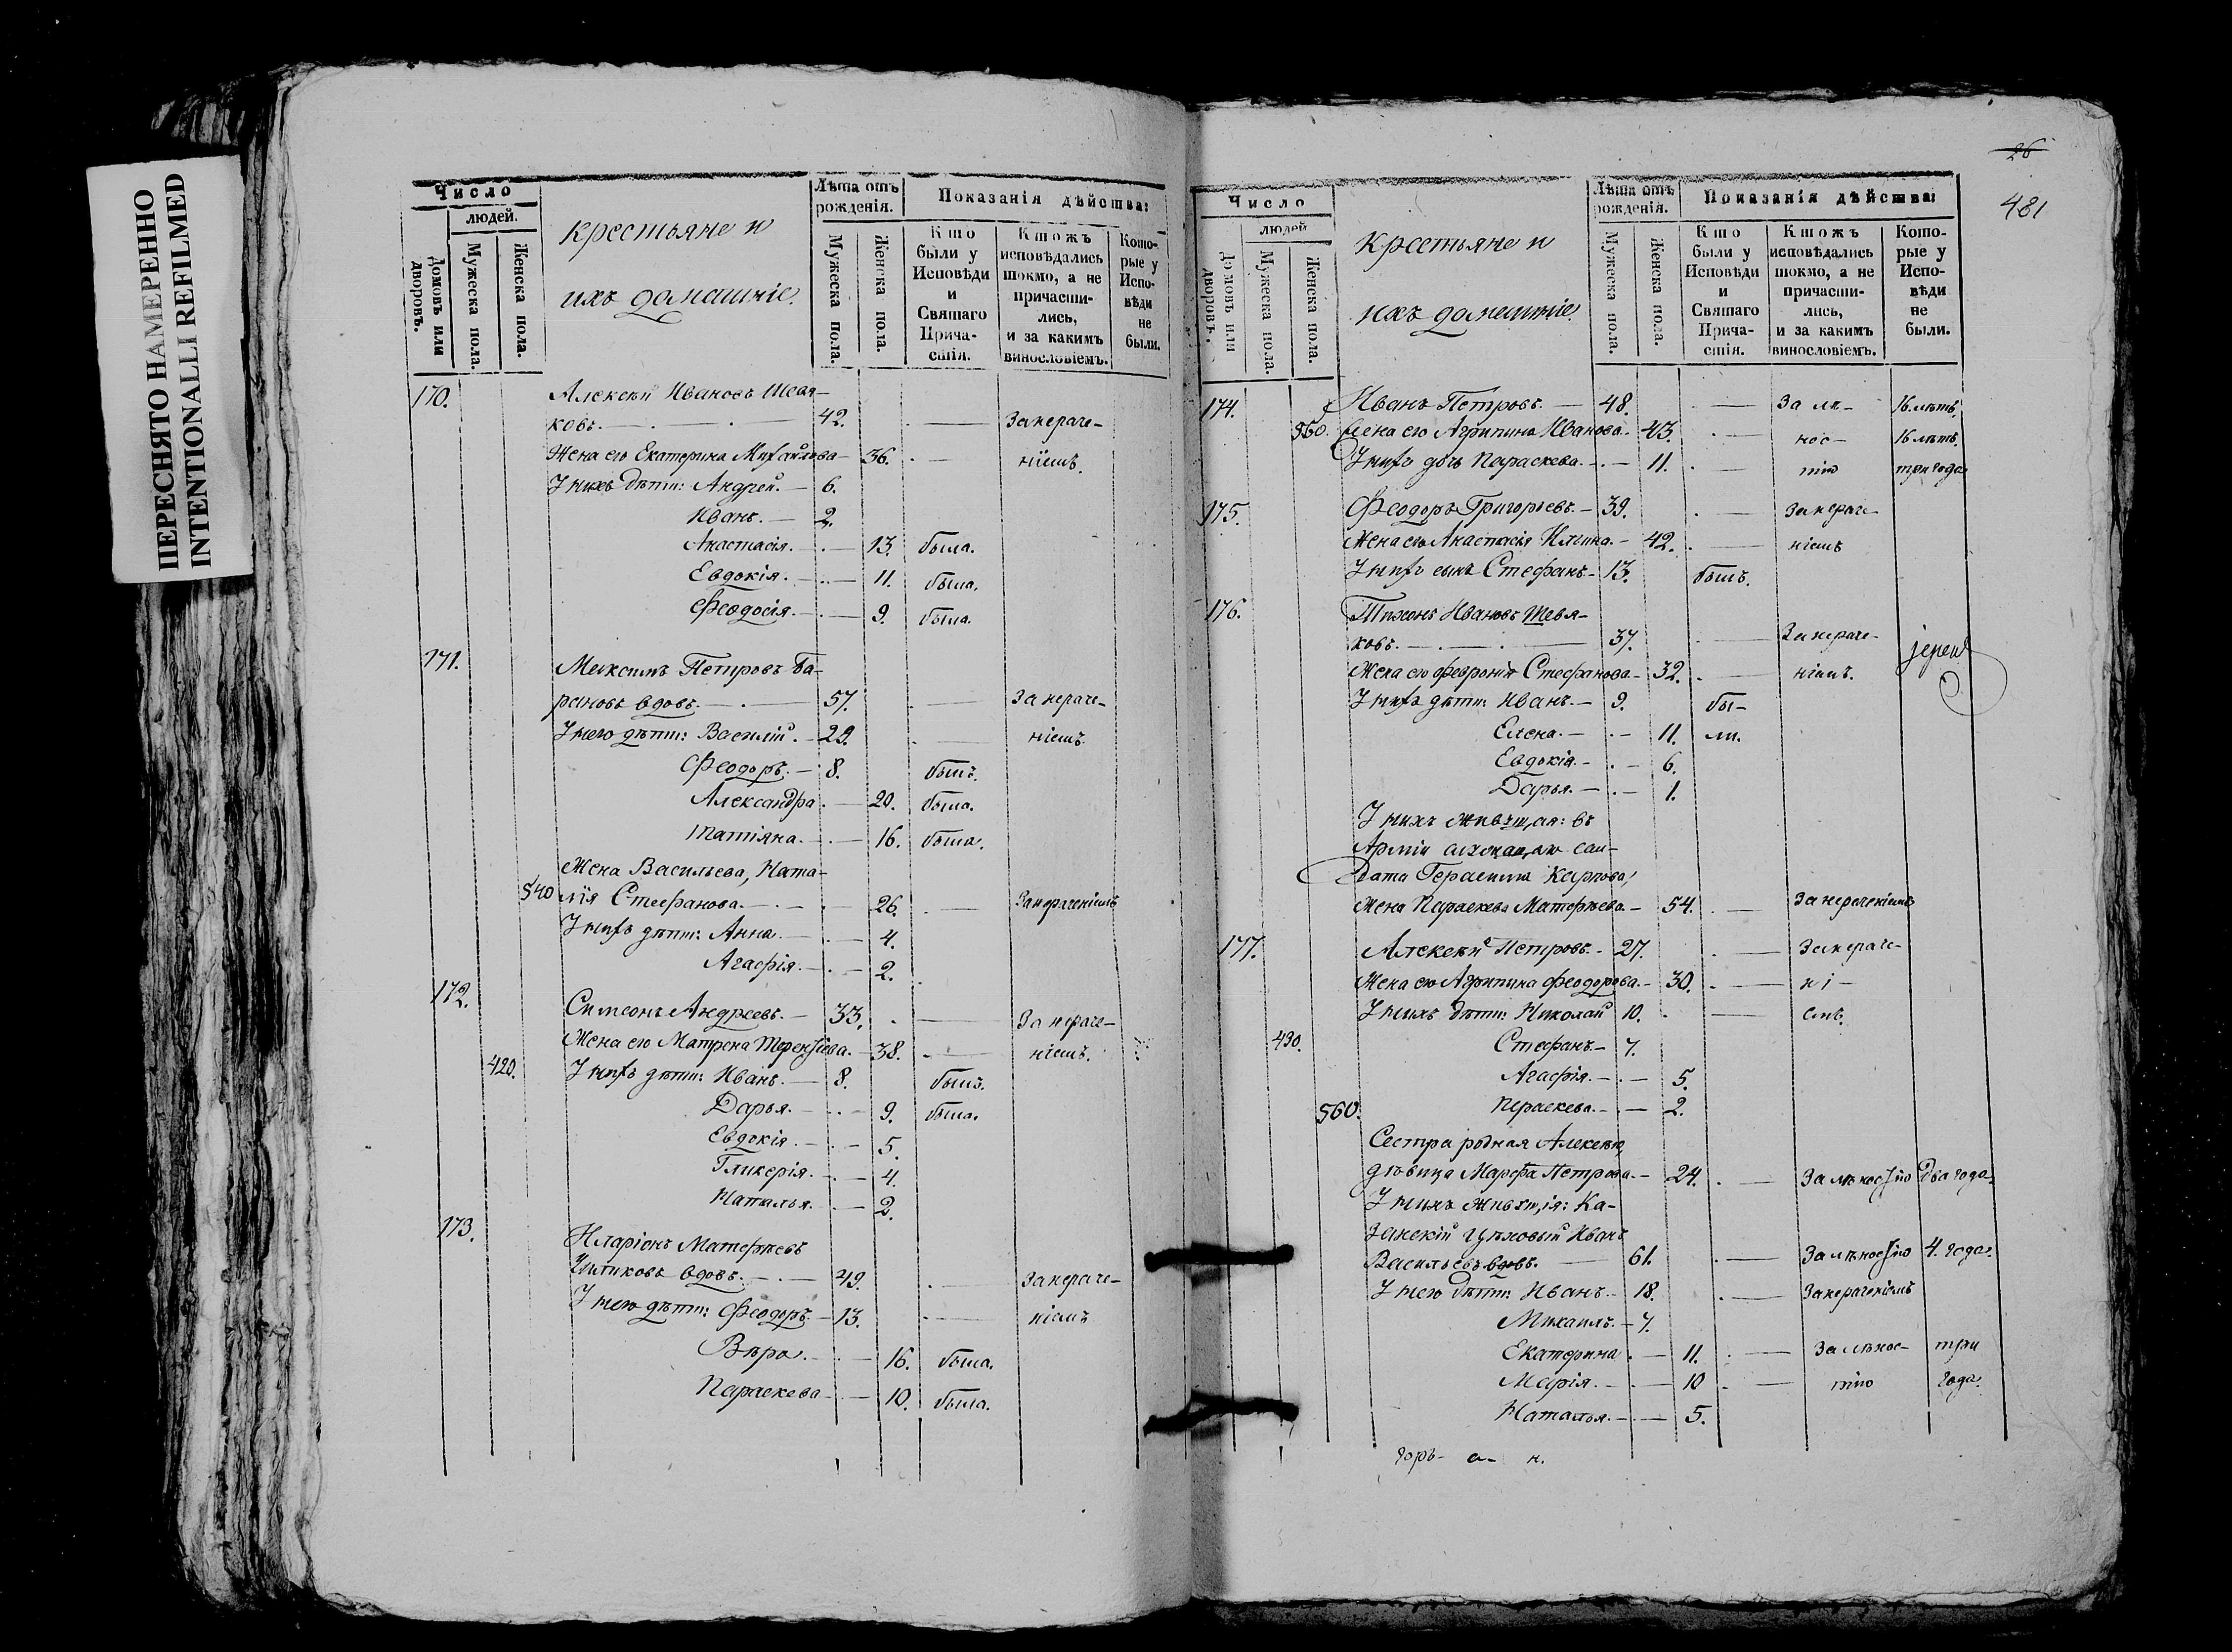 ПЕРЕСНЯТО НАМЕРЕННО
INTENTIONALLI REFILMED
Число
людей.
Домовъ или дворовъ.
Мужеска пола.
Женска пола.
Крестьяне и
ихъ домашніе.
Лѣта отъ рожденія.
Мужеска пола.
Женска пола.
Показанія дѣйства:
Кто были у Исповѣди и Святаго Причастія.
Ктожъ исповѣдались токмо, а не причастились, и за какимъ винословіемъ.
Которые у Исповѣди не были.
170. Алексѣй Ивановъ Шевя-
ковъ. 42. За нераче-
Жена его Екатерина Михайлова 36. ніемъ.
У нихъ дѣти: Андрей. 6.
Иванъ. 2.
Анастасія. 13. была.
Евдокія. 11. была.
Феодосія. 9. была.
171. Максимъ Петровъ Ба-
рановъ вдовъ. 57. За нераче-
У него дѣти: Василій. 29. ніемъ.
Феодоръ. 8. былъ.
Александра 20. была.
Татіяна. 16. была.
Жена Васильева, Ната-
540 лія Стефанова. 26. За нераченіемъ
У нихъ дѣти: Анна. 4.
Агафія. 2.
172. Симеонъ Андреевъ. 33. За нераче-
Жена его Матрена Терентіева. 38. ніемъ.
420. У нихъ дѣти: Иванъ. 8. былъ.
Дарья. 9. была.
Евдокія. 5.
Гликерія. 4.
Наталья. 2.
173. Иларіонъ Матфѣевъ
вдовъ. 49. За нераче-
У него дѣти: Феодоръ. 13. ніемъ
Вѣра. 16. была.
Параскева 10. была.
26
481
Число
людей
Домовъ или дворовъ.
Мужеска пола.
Женска пола.
Крестьяне и
ихъ домашніе.
Лѣта отъ рожденія.
Мужеска пола.
Женска пола.
Показанія дѣйства:
Кто были у Исповѣди и Святаго Причастія.
Ктожъ исповѣдались токмо, а не причастились, и за какимъ винословіемъ.
Которые у Исповѣди не были.
174. Иванъ Петровъ. 48. За лѣ- 16 лѣтъ.
550. Жена его Агрипина Иванова. 43. нос- 16 лѣтъ.
У нихъ дочь Параскева. 11. тію три года
175. Феодоръ Григорьевъ. 39. За нераче-
Жена его Анастасія Ильина. 42. ніемъ
У нихъ сынъ Стефанъ. 13. былъ.
176. Тихонъ Ивановъ Шевя-
ковъ. 37. За нераче- іерей
Жена его Февронія Стефанова. 32. ніемъ.
У нихъ дѣти: Иванъ. 9. бы-
Елена. 11. ли.
Евдокія. 6.
Дарья. 1.
У нихъ живущая: въ
Арміи сал-
дата Герасима Карпова,
Жена Параскева Матфѣева. 54. За нераченіемъ
177. Алексѣй Петровъ. 27. За нераче-
Жена его Агрипина Феодорова. 30. ні-
У нихъ дѣти: Николай 10. емъ.
430. Стефанъ. 7.
Агафія. 5.
560. Параскева. 2.
Сестра родная Алексѣю
дѣвица Марфа Петрова. 24. За лѣностію два года.
У нихъ живущія: Ка-
занскій цѣховый Иванъ
Васильевъ вдовъ. 61. За лѣностію 4. года.
У него дѣти: Иванъ. 18. За нераченіемъ
Михаилъ. 7.
Екатерина 11. За лѣнос- три
Марія. 10 тію года.
Наталья. 5.
горъ- а- н.